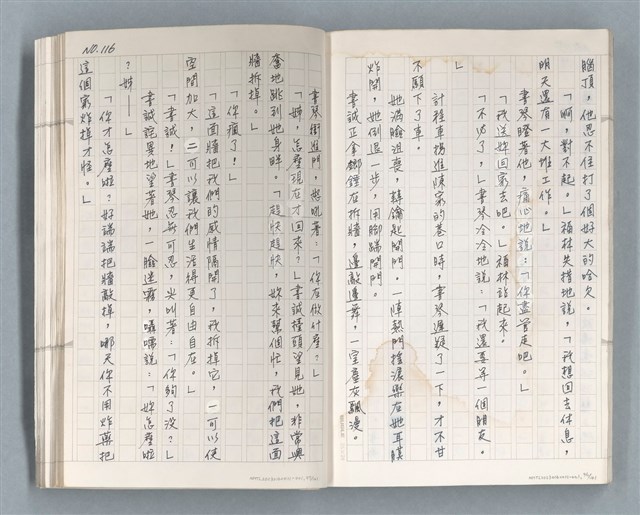 腦頂，他忍不住打了個好大的哈欠。
「啊，對不起。」福林失措地說，「我想回去休息，
明天還有一大堆工作。」
書琴瞪著他，痛心地說：「你儘管走吧。」
「我送妳回家去吧。」福林站起來。
「不必了，」書琴冷冷地說：「我還要等一個朋友。
」
計程車揚進陳家的巷口時，書琴遲疑了一下，才不甘
不願下了車。
她滿臉沮喪，轉鑰匙開門。一陣熱門搖滾樂在她耳膜
炸開，她倒退一步，用腳踹開門。
書誠正拿鎯鎚在拆牆，邊敲邊舞，一室塵灰飄漫。
NO.116
書琴衝進門，怒吼著：「你在做什麼？」
「姊，怎麼現在才回來？」書誠擡頭望見她，非常興
奮地跳到她身畔。「趕快趕快，妳來幫個忙，我們把這面
牆拆掉。」
「你瘋了！」
「這面牆把我們的感情隔開了，我拆掉它，一可以使
空間加大，二可以讓我們生活得更自由自在。」
「書誠！」書琴忍無可忍，尖叫著：「你夠了沒？」
書誠詫異地望著她，一臉迷霧，囁嚅說：「妳怎麼啦
？姊——」
「你才怎麼啦？好端端把牆敲掉，哪天你不用炸藥把
這個家炸掉才怪。」